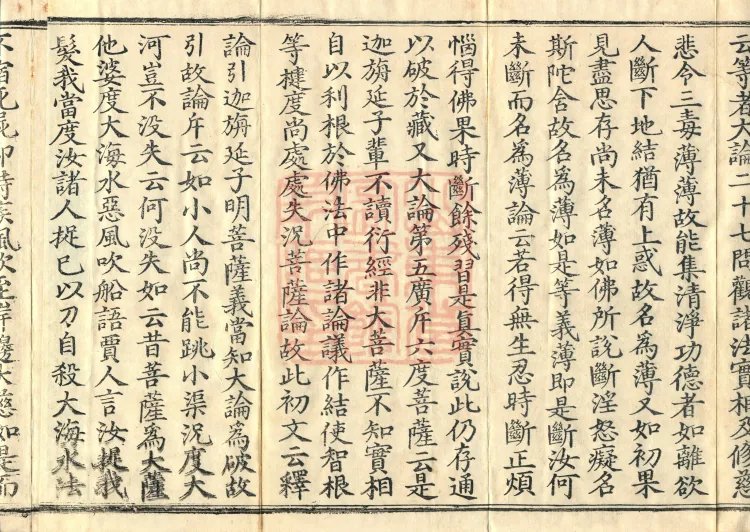 云等者大論二十七問觀諸法實相及修慈
悲令三毒薄薄故能集清淨功德者如離欲
人斷下地結猶有上惑故名為薄又如初果
見盡思存尚未名薄如佛所說斷淫怒癡名
斯陀含故名為薄如是等義薄即是斷汝何
未斷而名為薄論云若得無生忍時斷正煩
惱得佛果時斷餘殘習是真實說此仍存通
以破於藏又大論第五廣斥六度菩薩云是
迦旃延子輩不讀衍經非大菩薩不知實相
自以利根於佛法中作諸論議作結使智根
等揵度尚處處失況菩薩論故此初文云釋
論引迦旃延子明菩薩義當知大論為破故
引故論斥云如小人尚不能跳小渠況度大
河豈不没失云何没失如云昔菩薩為大薩
他婆度大海水惡風吹船語賈人言汝捉我
髮我當度汝諸人捉已以刀自殺大海水法
不宿死屍即時疾風吹至岸邊大慈如是而